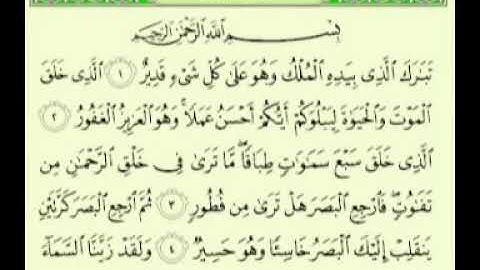 بِسْمِ ٱللَّهِ ٱلرَّحْمَٰنِ ٱلرَّحِيمِ
تَبَٰرَكَ ٱلَّذِى بِيَدِهِ ٱلْمُلْكُ وَهُوَ عَلَىٰ كُلِّ شَىْءٍ قَدِيرٌ ١ ٱلَّذِى خَلَقَ
ٱلْمَوْتَ وَٱلْحَيَوٰةَ لِيَبْلُوَكُمْ أَيُّكُمْ أَحْسَنُ عَمَلًا وَهُوَ ٱلْعَزِيزُ ٱلْغَفُورُ ٢
ٱلَّذِى خَلَقَ سَبْعَ سَمَٰوَٰتٍ طِبَاقًا مَّا تَرَىٰ فِى خَلْقِ ٱلرَّحْمَٰنِ مِن
تَفَٰوُتٍ فَٱرْجِعِ ٱلْبَصَرَ هَلْ تَرَىٰ مِن فُطُورٍ ٣ ثُمَّ ٱرْجِعِ ٱلْبَصَرَ كَرَّتَيْنِ
يَنقَلِبْ إِلَيْكَ ٱلْبَصَرُ خَاسِئًا وَهُوَ حَسِيرٌ ٤ وَلَقَدْ زَيَّنَّا ٱلسَّمَآءَ